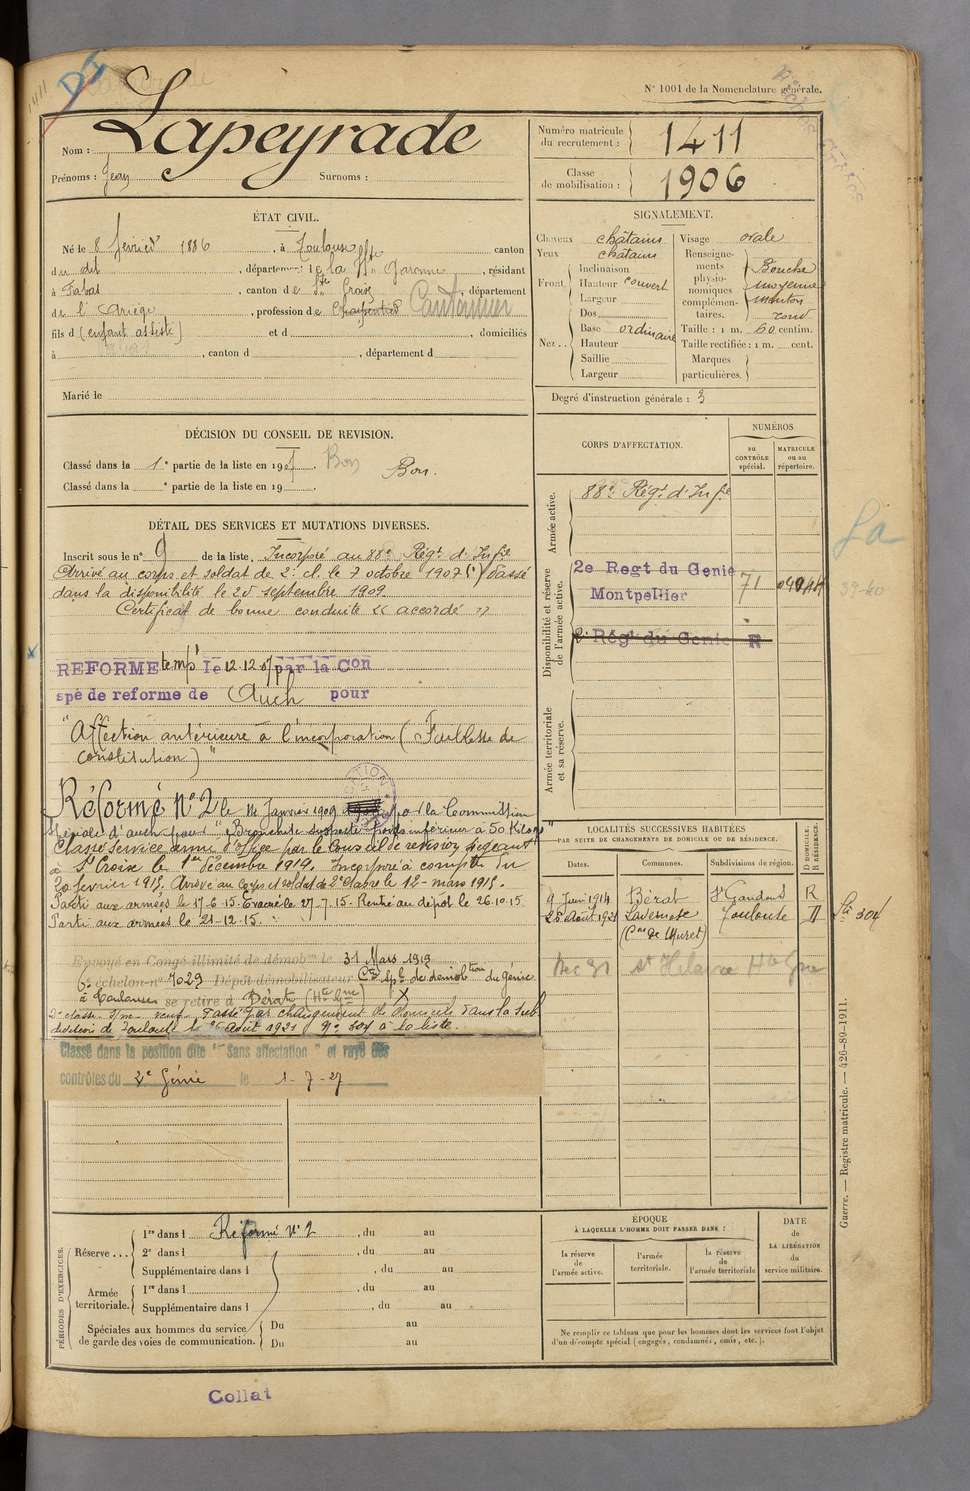 N° 1001 de la Nomenclature générale.
Nom : Lapeyrade
Prénoms : Jean Surnoms :
Numéro matricule du recrutement : 1411
Classe de mobilisation : 1906
ÉTAT CIVIL.
Né le 8 février 1886, à Toulouse canton
du dit, département de la Hte Garonne, résidant
à Fabas, canton de Ste Croix, département
de l'Ariège, profession de Charpentier Cantonnier
fils d (enfant assisté) et d , domiciliés
à , canton d , département d
Marié le
SIGNALEMENT.
Cheveux châtains
Yeux châtains
Front Inclinaison
Hauteur couvert
Largeur
Nez Dos
Base ordinaire
Hauteur
Saillie
Largeur
Visage ovale
Renseignements physionomiques complémentaires. Bouche
moyenne
menton
rond
Taille : 1 m. 60 centim.
Taille rectifiée : 1 m. cent.
Marques particulières.
Degré d'instruction générale : 3
DÉCISION DU CONSEIL DE REVISION.
Classé dans la 1e partie de la liste en 1907. Bon Bon.
Classé dans la e partie de la liste en 19 .
DÉTAIL DES SERVICES ET MUTATIONS DIVERSES.
Inscrit sous le n° 9 de la liste. Incorporé au 88e Régt d'Infie
Arrivé au corps et soldat de 2e cl. le 7 octobre 1907 passé
dans la disponibilité le 25 septembre 1909
Certificat de bonne conduite « accordé »
REFORME temp le 12-12-07 par la Con
spé de reforme de Auch pour
"Affection antérieure à l'incorporation (Faiblesse de
constitution)"
Réformé N° 2 le Janvier 1909 par la Commission
spéciale d'Auch pour "Bronchite suspecte poids inférieur à 50 Kilogs"
Classé service armé d'office par le Conseil de revision siégeant
à Ste Croix le 1er décembre 1914. Incorporé à compter du
20 février 1915. Arrivé au Corps et soldat de 2e classe le 12 mars 1915.
Parti aux armées le 17-6-15. Evacué le 27-7-15. Rentré au dépôt le 26.10.15
Parti aux armées le 21-12-15.
Envoyé en Congé illimité de démobon le 31 Mars 1919
6e échelon n° 7029 Dépôt démobilisateur Ctre spl de démobtion du génie
à Toulouse se retire à Bérat (Hte Gne)
Passé par changement de domicile dans la sub
division de Toulouse le 26 Août 1921 n° 304 à la liste.
Classé dans la position dite "Sans affectation" et rayé des
contrôles du 2e Génie le 1-7-27
CORPS D'AFFECTATION.
NUMÉROS
au CONTRÔLE spécial.
MATRICULE ou au répertoire.
Armée active.
88e Régt d'Infie
Disponibilité et réserve de l'armée active.
2e Regt du Genie
Montpellier 71
2e Régt du Genie R
Armée territoriale et sa réserve.
LOCALITÉS SUCCESSIVES HABITÉES
PAR SUITE DE CHANGEMENTS DE DOMICILE OU DE RÉSIDENCE.
Dates. Communes. Subdivisions de région. D DOMICILE. R RÉSIDENCE.
9 Juin 1914 Bérat St Gaudens R
26 Août 1921 Lavernose Toulouse D
(Con de Muret)
Dec 31 St Hilaire Hte Gne
39-40
304
PÉRIODES D'EXERCICES.
Réserve 1re dans l Réformé N° 2, du au
2e dans l , du au
Supplémentaire dans l , du au
Armée territoriale. 1re dans l , du au
Supplémentaire dans l , du au
Spéciales aux hommes du service de garde des voies de communication. Du au
Du au
ÉPOQUE
À LAQUELLE L'HOMME DOIT PASSER DANS :
la réserve de l'armée active.
l'armée territoriale.
la réserve de l'armée territoriale
DATE de LA LIBÉRATION du service militaire.
Ne remplir ce tableau que pour les hommes dont les services font l'objet
d'un décompte spécial (engagés, condamnés, omis, etc.).
Guerre. — Registre matricule. — 426-89-1911.
Collat